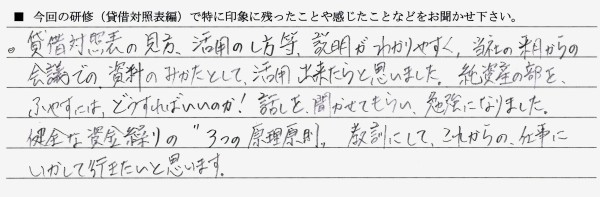 ■ 今回の研修（貸借対照表編）で特に印象に残ったことや感じたことなどをお聞かせ下さい。
。貸借対照表の見方、活用のし方等、説明がわかりやすく、当社の来月からの
会議での、資料のみかたとして、活用出来たらと思いました。純資産の部を、
ふやすには、どうすればいいのか！話しを、聞かせてもらい、勉強になりました。
健全な資金繰りの〝3つの原理原則〟教訓にして、これからの、仕事に
いかして行きたいと思います。